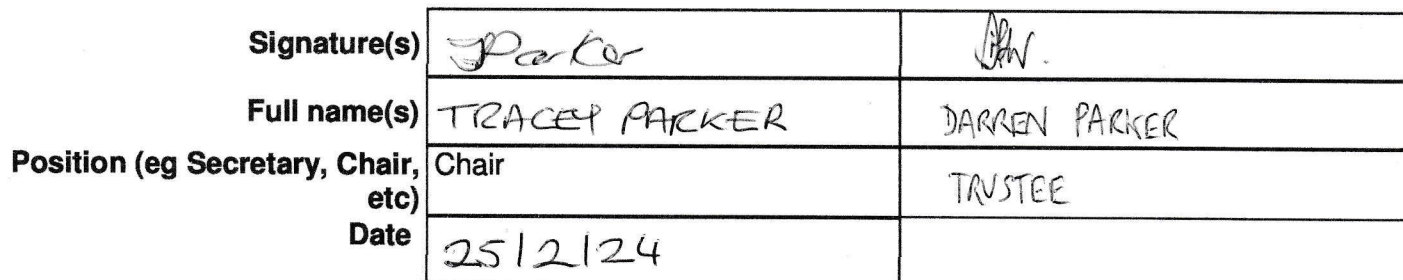 Signature(s) JParker
Full name(s) TRACEY PARKER DARREN PARKER
Position (eg Secretary, Chair, Chair
etc) TRUSTEE
Date 25/2/24